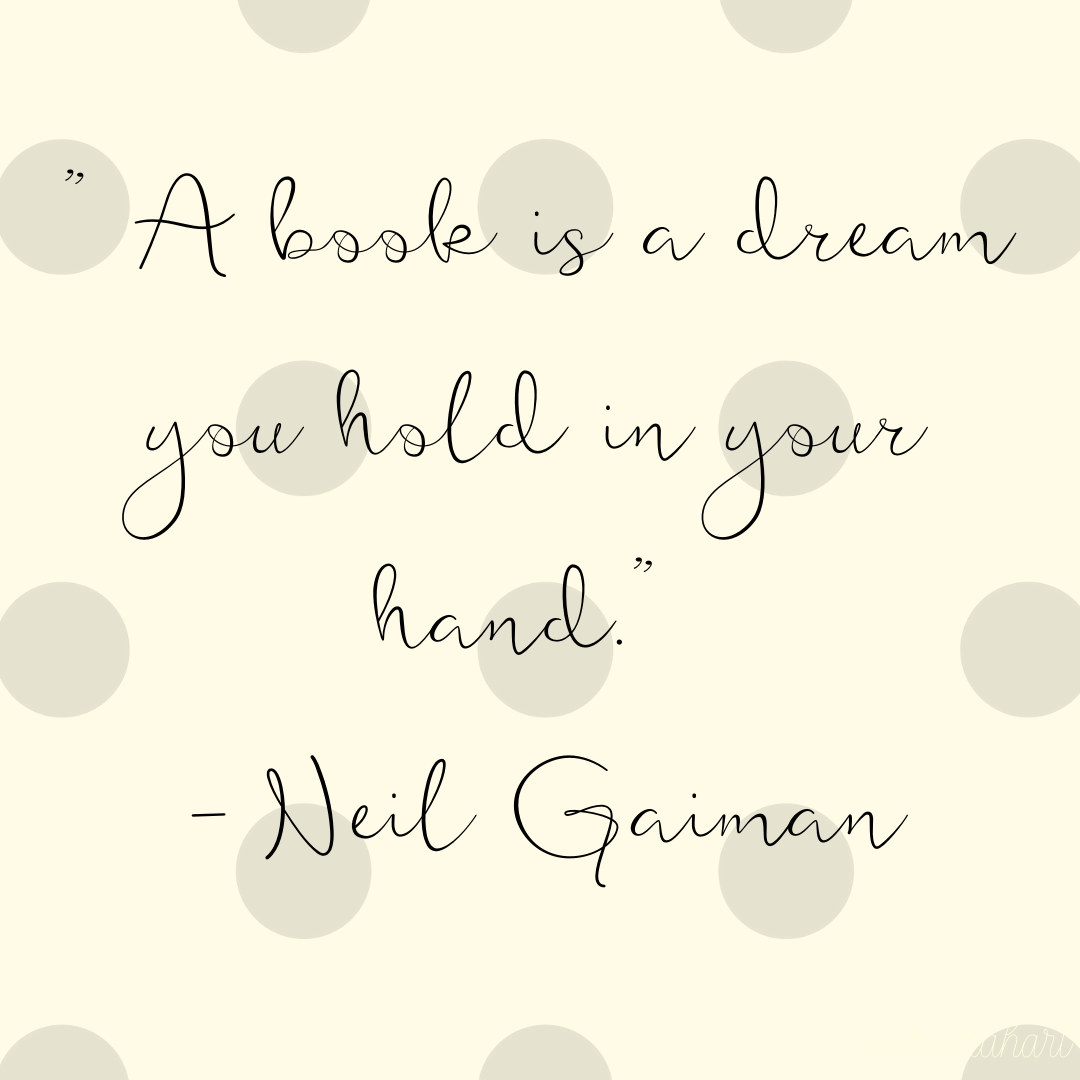 ” A book is a dream
you hold in your
hand.”
- Neil Gaiman